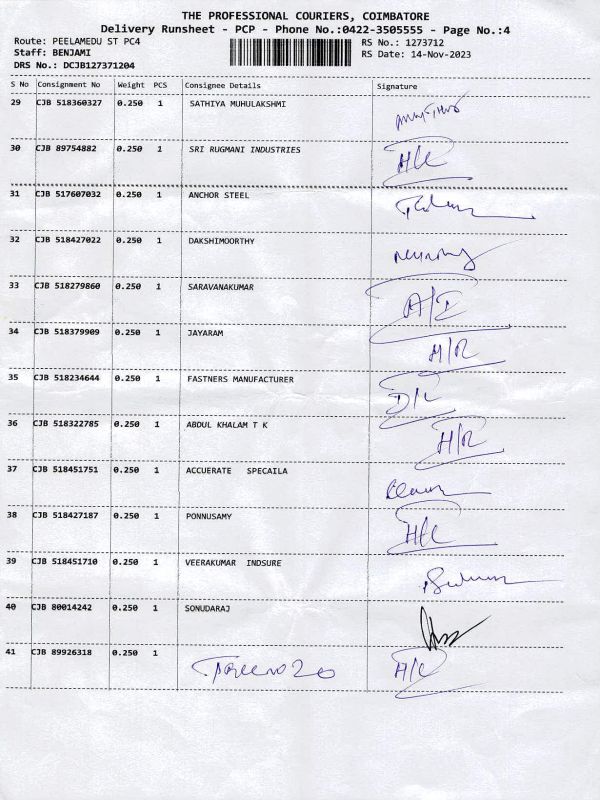 THE PROFESSIONAL COURIERS, COIMBATORE
Delivery Runsheet - PCP - Phone No.:0422-3505555 - Page No.:4
Route: PEELAMEDU ST PC4 RS No.: 1273712
Staff: BENJAMI RS Date: 14-Nov-2023
DRS No.: DCJB127371204
S No Consignment No Weight PCS Consignee Details Signature
29 CJB 518360327 0.250 1 SATHIYA MUHULAKSHMI
30 CJB 89754882 0.250 1 SRI RUGMANI INDUSTRIES
31 CJB 517607032 0.250 1 ANCHOR STEEL
32 CJB 518427022 0.250 1 DAKSHIMOORTHY
33 CJB 518279860 0.250 1 SARAVANAKUMAR
34 CJB 518379909 0.250 1 JAYARAM H/R
35 CJB 518234644 0.250 1 FASTNERS MANUFACTURER
36 CJB 518322785 0.250 1 ABDUL KHALAM T K H/R
37 CJB 518451751 0.250 1 ACCUERATE SPECAILA
38 CJB 518427187 0.250 1 PONNUSAMY
39 CJB 518451710 0.250 1 VEERAKUMAR INDSURE
40 CJB 80014242 0.250 1 SONUDARAJ
41 CJB 89926318 0.250 1